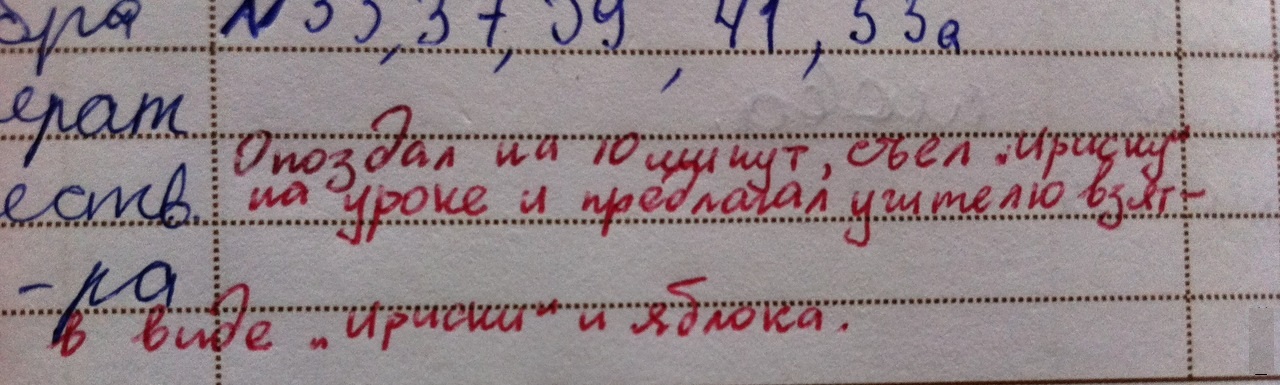 бра №35, 37, 39, 41, 53а
ерат
Опоздал на 10 минут, съел „Ириску“
еств. на уроке и предлагал учителю взят-
-ра
в виде „Ириски“ и яблока.